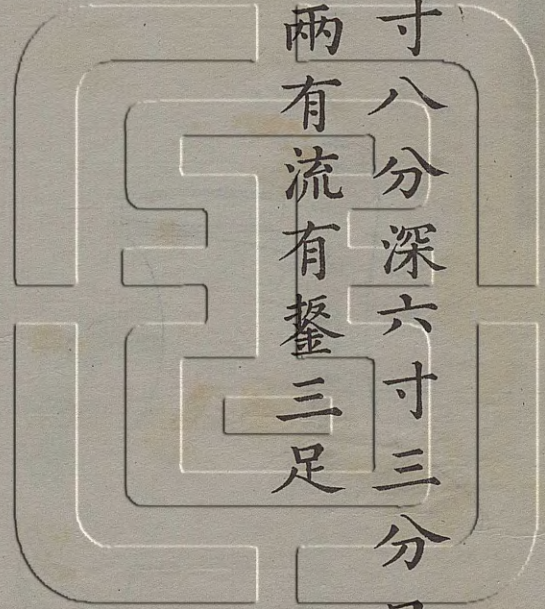 寸八分深六寸三分
兩有流有鋬三足